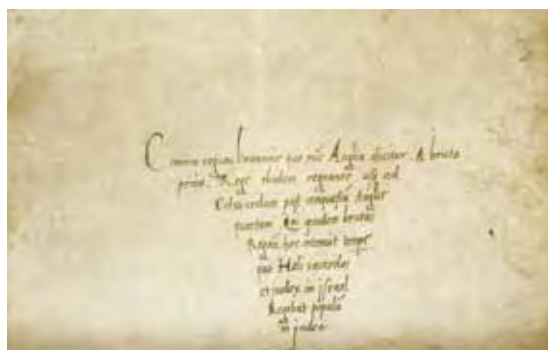 regnū britannie que nūc Anglia dicitur A bruto
primo Rege ibidem regnante usq ad
Edwardum post Anglie
tercium Qui quidem brutus
hoc intravit tempe
quo Heli sacerdos
et judex in israel
Regebat populū
in judea